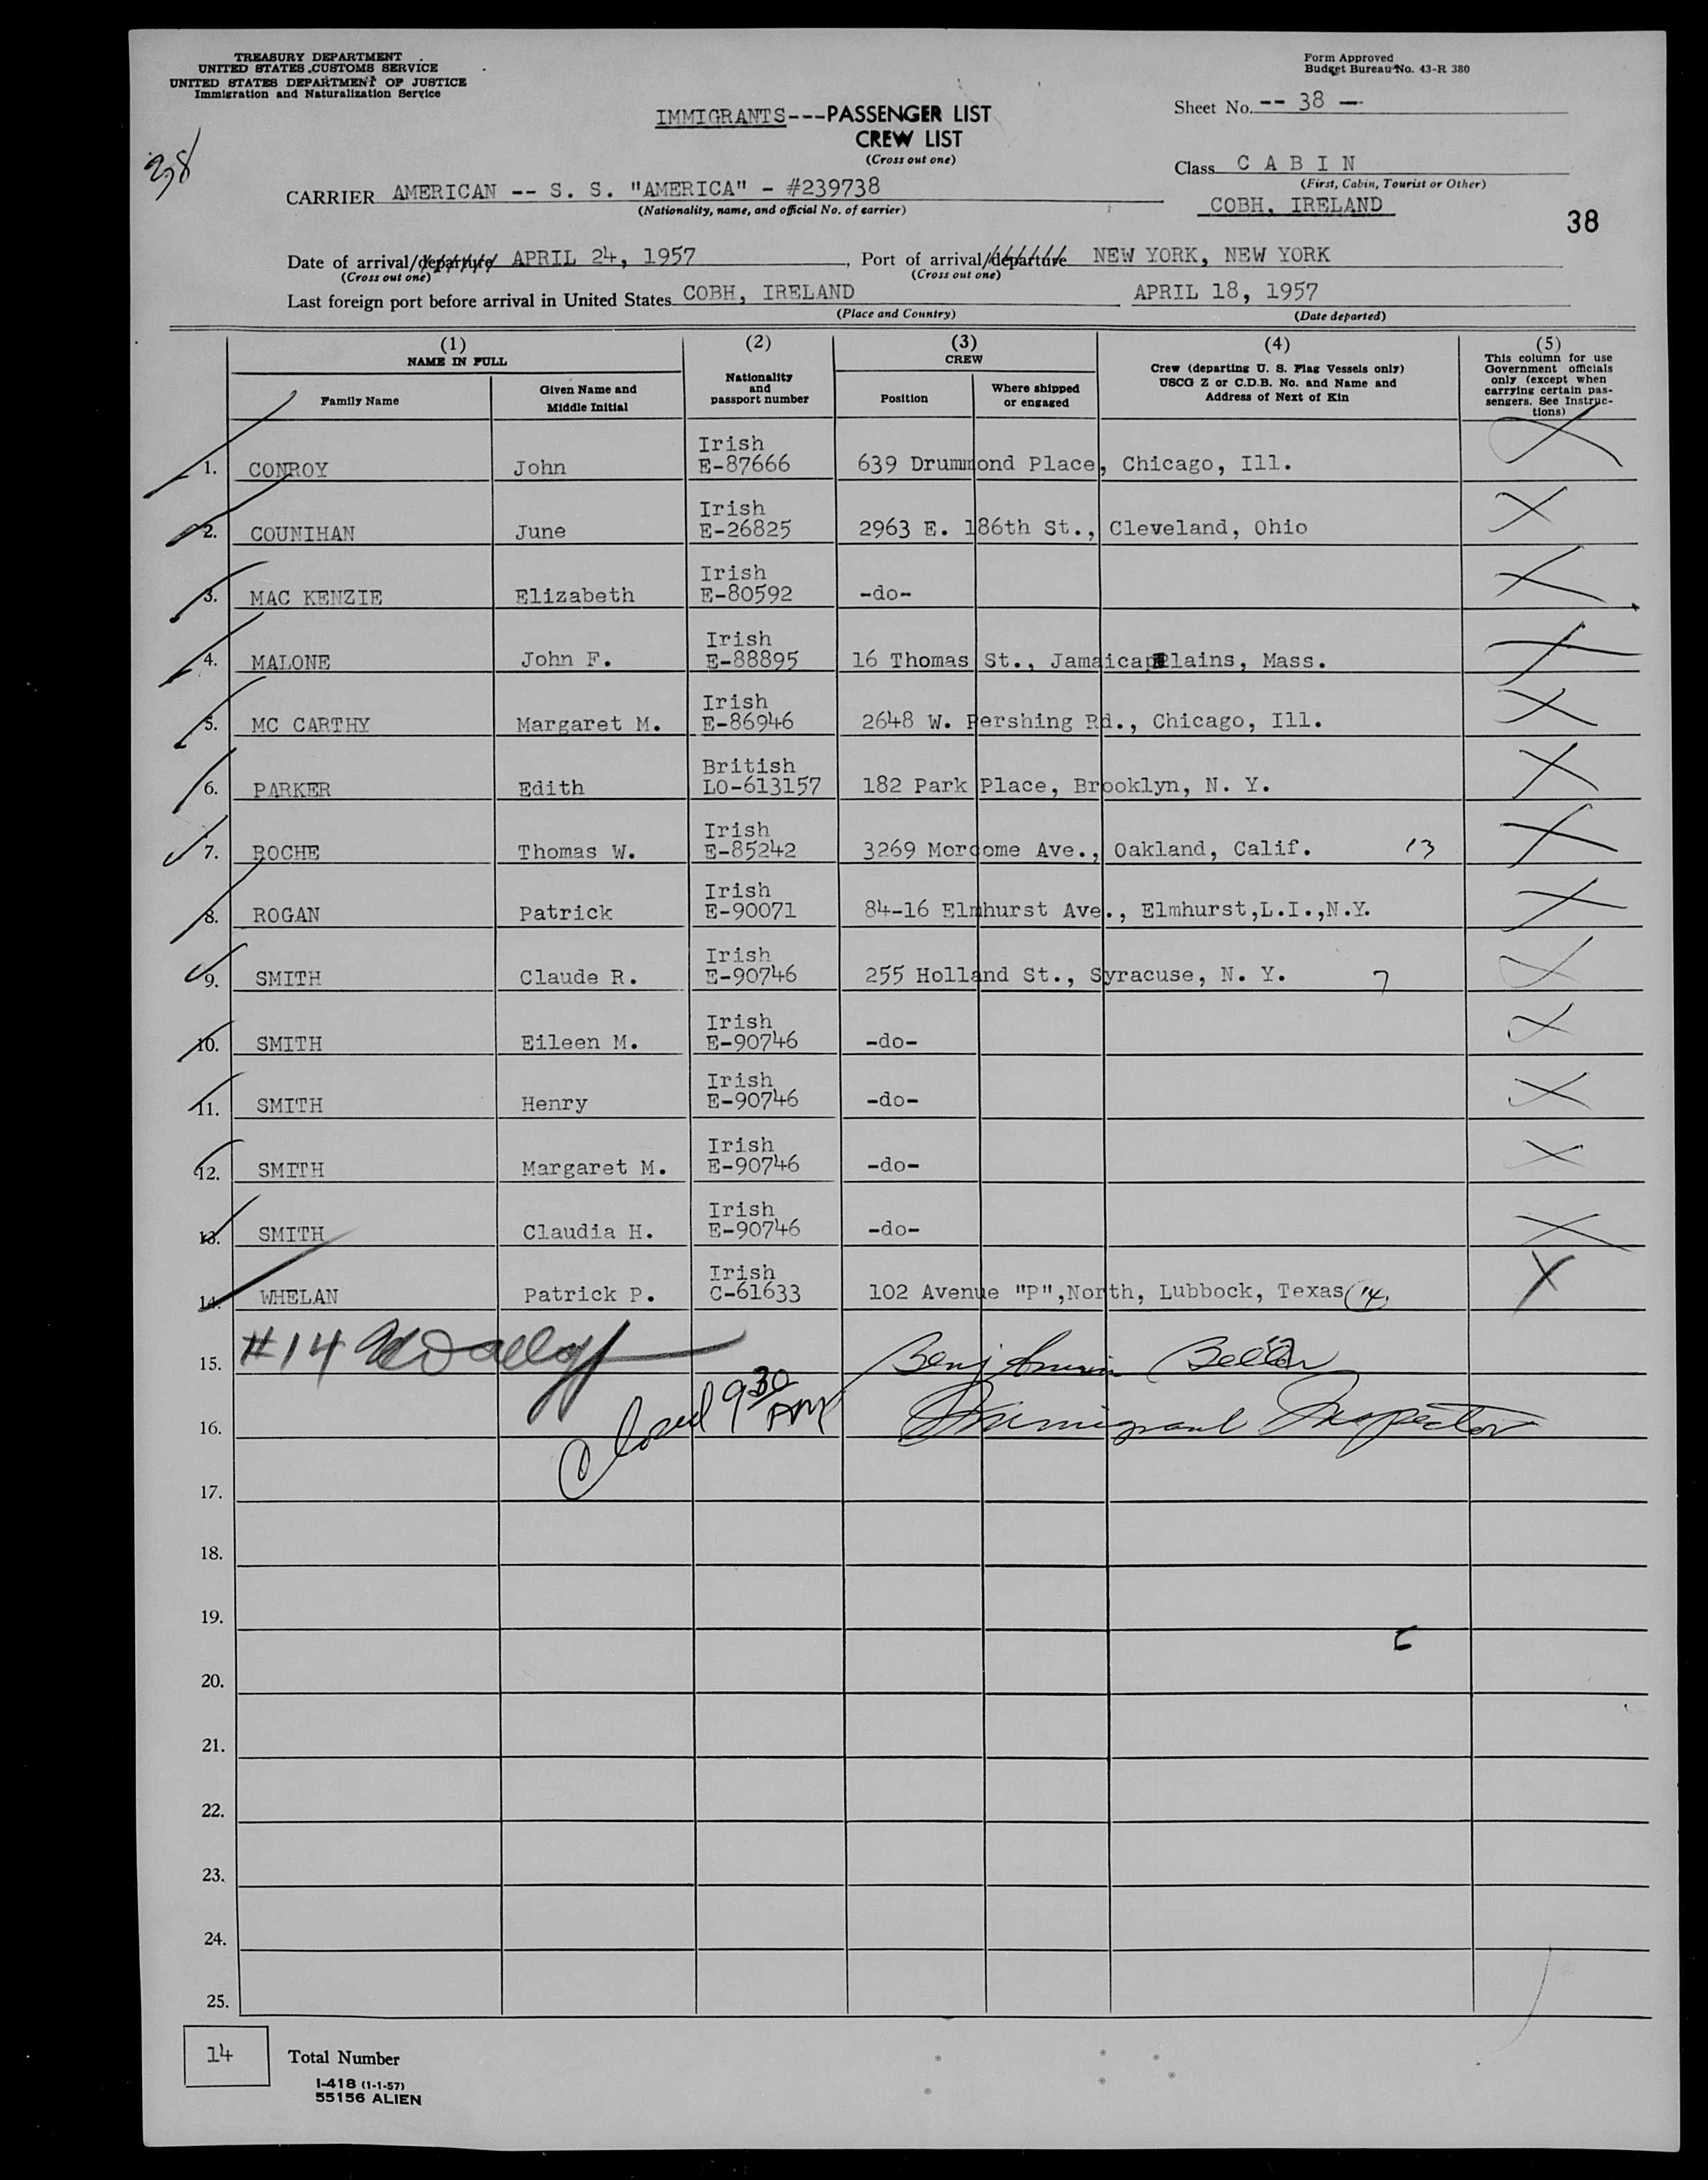 TREASURY DEPARTMENT
UNITED STATES CUSTOMS SERVICE
UNITED STATES DEPARTMENT OF JUSTICE
Immigration and Naturalization Service
Form Approved
Budget Bureau No. 43-R 380
Sheet No. -- 38 --
IMMIGRANTS---PASSENGER LIST
CREW LIST
(Cross out one)
38
Class C A B I N
(First, Cabin, Tourist or Other)
CARRIER AMERICAN -- S. S. "AMERICA" - #239738
(Nationality, name, and official No. of carrier)
COBH, IRELAND
38
Date of arrival/departure APRIL 24, 1957, Port of arrival/departure NEW YORK, NEW YORK
(Cross out one) (Cross out one)
Last foreign port before arrival in United States COBH, IRELAND APRIL 18, 1957
(Place and Country) (Date departed)
(1) (2) (3) (4) (5)
NAME IN FULL
Family Name
Given Name and
Middle Initial
Nationality
and
passport number
CREW
Position
Where shipped
or engaged
Crew (departing U. S. Flag Vessels only)
USCG Z or C.D.B. No. and Name and
Address of Next of Kin
This column for use
Government officials
only (except when
carrying certain pas-
sengers. See Instruc-
tions)
Irish
1. CONROY John E-87666 639 Drummond Place, Chicago, Ill. X
Irish
2. COUNIHAN June E-26825 2963 E. 186th St., Cleveland, Ohio X
Irish
3. MAC KENZIE Elizabeth E-80592 -do- X
Irish
4. MALONE John F. E-88895 16 Thomas St., Jamaica Plains, Mass. X
Irish
5. MC CARTHY Margaret M. E-86946 2648 W. Pershing Rd., Chicago, Ill. X
British
6. PARKER Edith LO-613157 182 Park Place, Brooklyn, N. Y. X
Irish
7. ROCHE Thomas W. E-85242 3269 Morcome Ave., Oakland, Calif. 13 X
Irish
8. ROGAN Patrick E-90071 84-16 Elmhurst Ave., Elmhurst,L.I.,N.Y. X
Irish
9. SMITH Claude R. E-90746 255 Holland St., Syracuse, N. Y. 7 X
Irish
10. SMITH Eileen M. E-90746 -do- X
Irish
11. SMITH Henry E-90746 -do- X
Irish
12. SMITH Margaret M. E-90746 -do- X
Irish
13. SMITH Claudia H. E-90746 -do- X
Irish
14. WHELAN Patrick P. C-61633 102 Avenue "P",North, Lubbock, Texas (14) X
15. #14 Benjamin
16. Closed 9 30 AM Immigrant Inspector
17.
18.
19.
20.
21.
22.
23.
24.
25.
14 Total Number
I-418 (1-1-57)
55156 ALIEN